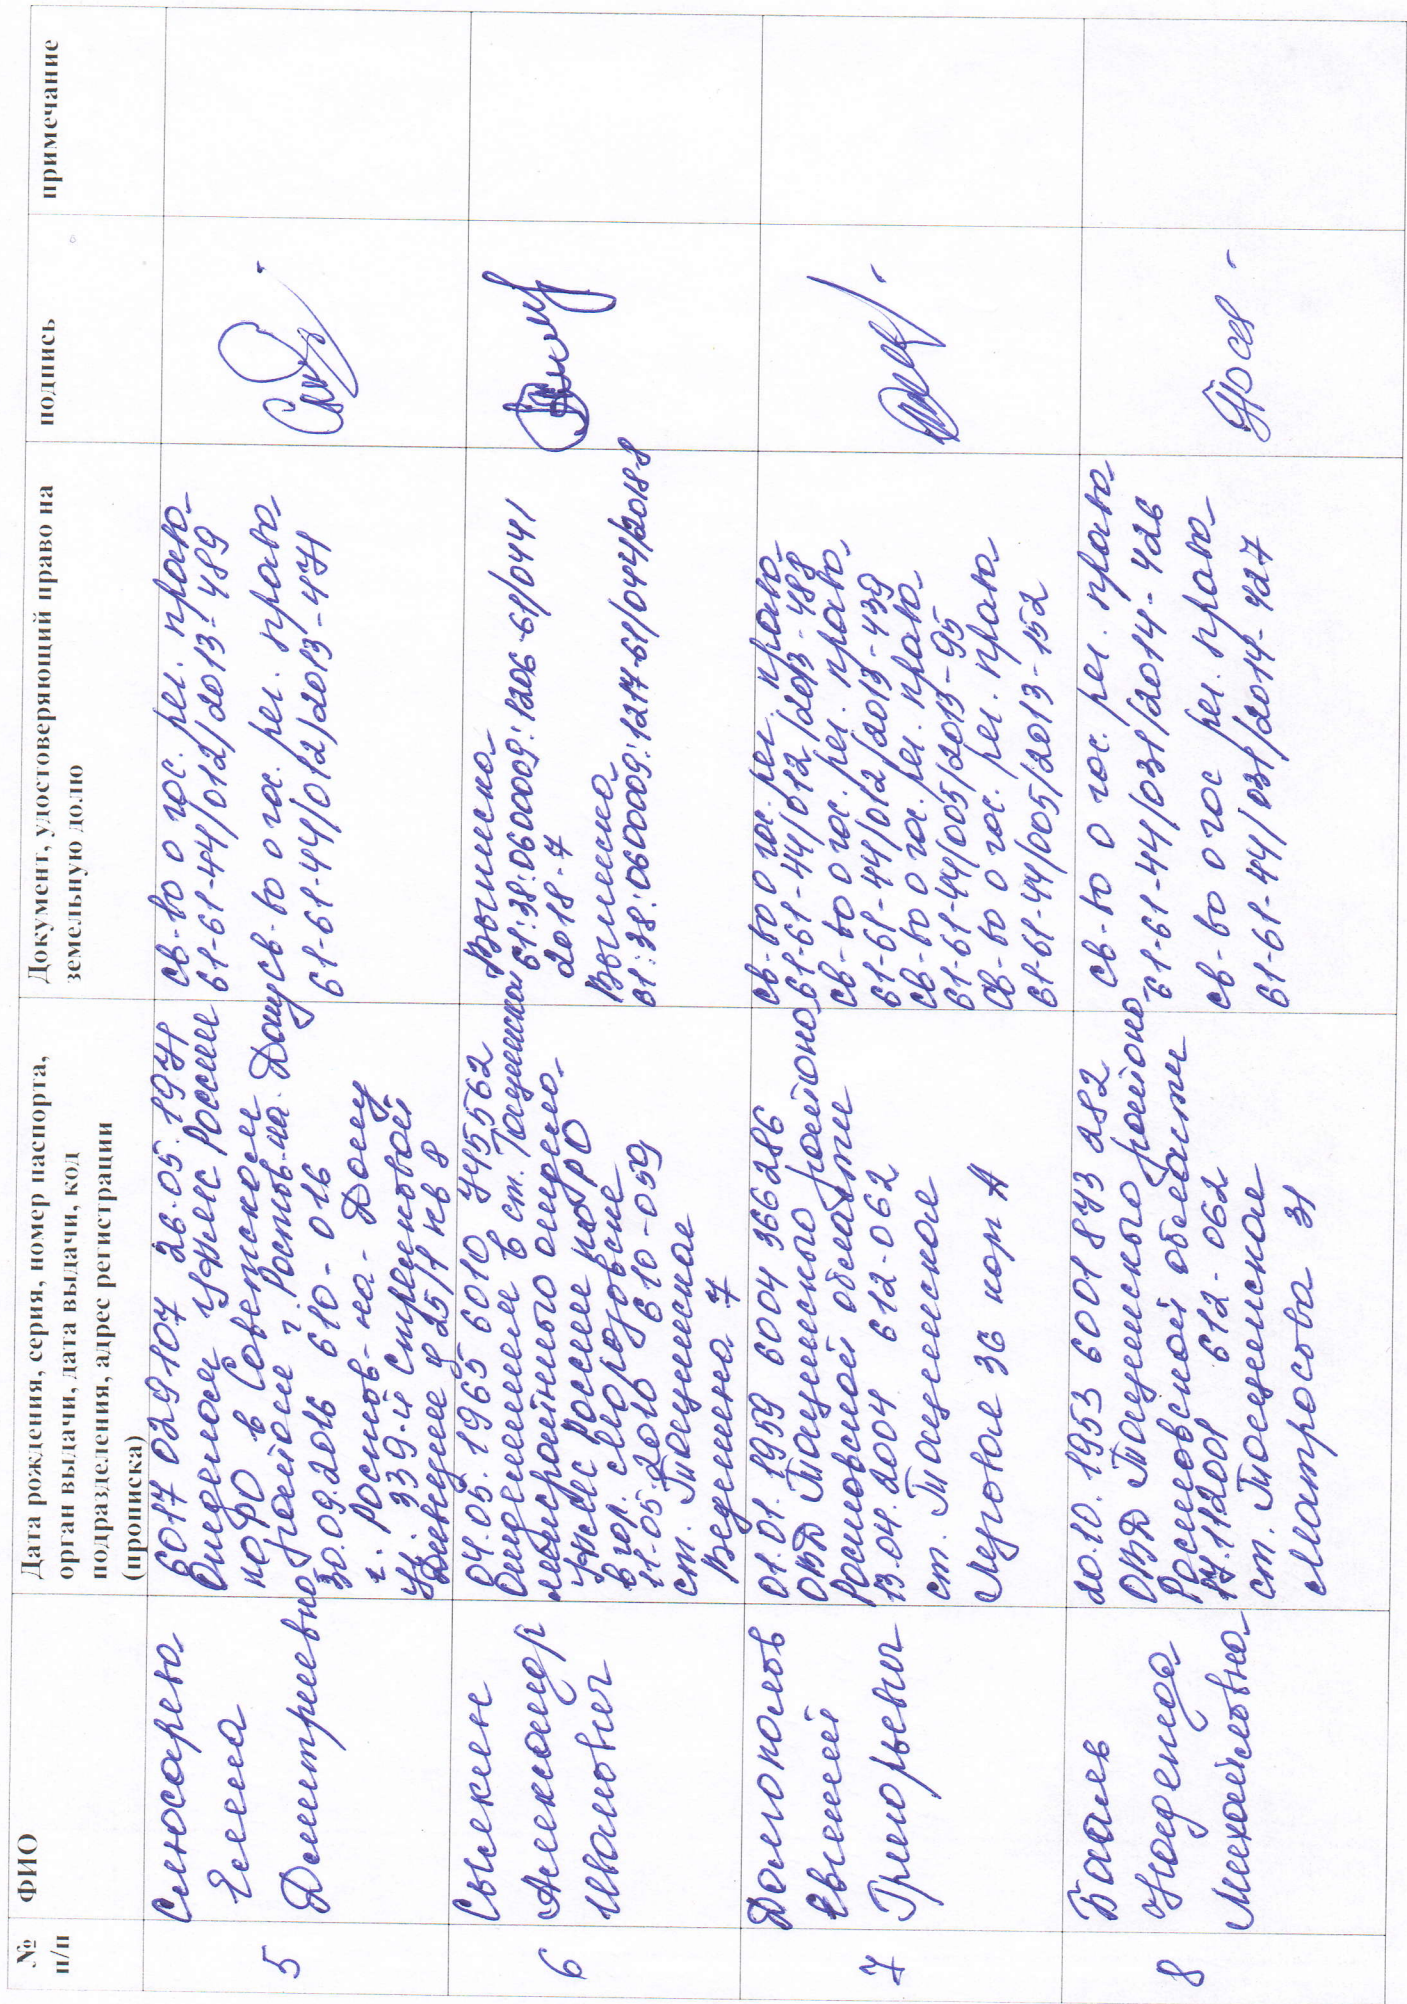 №
п/п
ФИО
Дата рождения, серия, номер паспорта,
орган выдачи, дата выдачи, код
подразделения, адрес регистрации
(прописка)
Документ, удостоверяющий право на
земельную долю
подпись
примечание
5
Слюсарева
Елена
Дмитриевна
6017 029107 26.05.1971
Отделом УФМС России
по РО в Советском
районе г. Ростов-на-Дону
30.09.2016 610-016
г. Ростов-на-Дону
ул. 339-й Стрелковой
Дивизии д 25/1 кв 8
св-во о гос. рег. права
61-61-44/012/2013-489
св-во о гос. рег. права
61-61-44/012/2013-471
6
Сылкин
Александр
Иванович
04.05.1965 6010 745562
Отделением в ст. Тацинская
межрайонного отдела
УФМС России по РО
в гор. Морозовске
11.05.2010 610-059
ст. Тацинская
Веденина 7
Выписка
61:38:0600009:1206-61/044/
2018-7
Выписка
61:38:0600009:1217-61/044/2018-8
7
Долгополов
Евгений
Григорьевич
01.01.1959 6004 366286
ОВД Тацинского района
Ростовской области
13.04.2004 612-062
ст. Тацинская
Луговая 36 кор А
св-во о гос. рег. права
61-61-44/012/2013-488
св-во о гос. рег. права
61-61-44/012/2013-439
св-во о гос. рег. права
61-61-44/005/2013-95
св-во о гос. рег. права
61-61-44/005/2013-152
8
Бааль
Надежда
Михайловна
20.10.1953 6001 873282
ОВД Тацинского района
Ростовской области
17.11.2001 612-062
ст. Тацинская
Матросова 31
св-во о гос. рег. права
61-61-44/031/2014-426
св-во о гос рег. права
61-61-44/031/2014-427